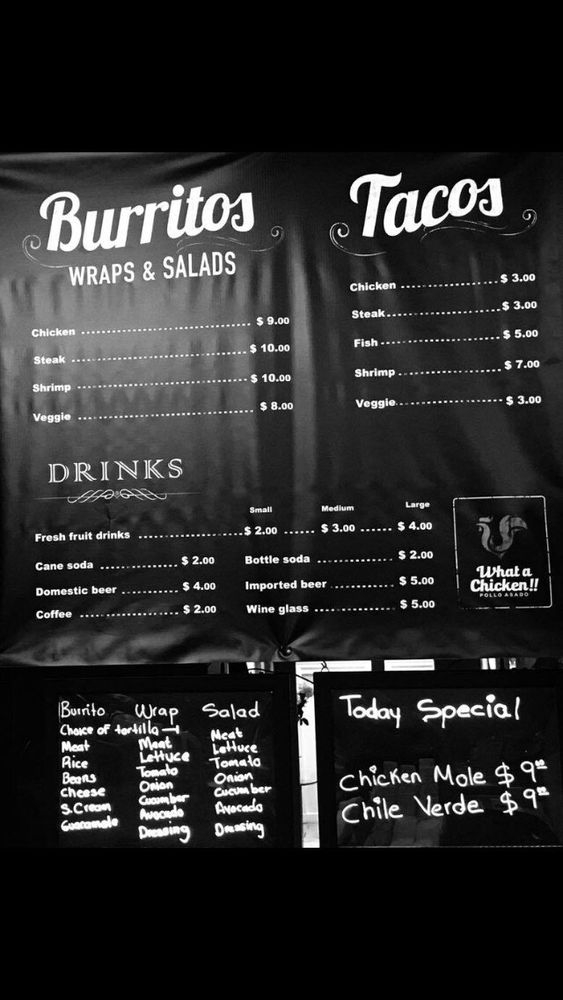 Burritos
WRAPS & SALADS
Chicken $ 9.00
Steak $ 10.00
Shrimp $ 10.00
Veggie $ 8.00
Tacos
Chicken $ 3.00
Steak $ 3.00
Fish $ 5.00
Shrimp $ 7.00
Veggie $ 3.00
DRINKS
Small Medium Large
Fresh fruit drinks $ 2.00 $ 3.00 $ 4.00
Cane soda $ 2.00 Bottle soda $ 2.00
Domestic beer $ 4.00 Imported beer $ 5.00
Coffee $ 2.00 Wine glass $ 5.00
What a
Chicken!!
POLLO ASADO
Burrito
Choice of tortilla
Meat
Rice
Beans
Cheese
S.Cream
Guacamole
Wrap
Meat
Lettuce
Tomato
Onion
Cucumber
Avocado
Dressing
Salad
Meat
Lettuce
Tomato
Onion
Cucumber
Avocado
Dressing
Today Special
Chicken Mole $ 9.00
Chile Verde $ 9.00